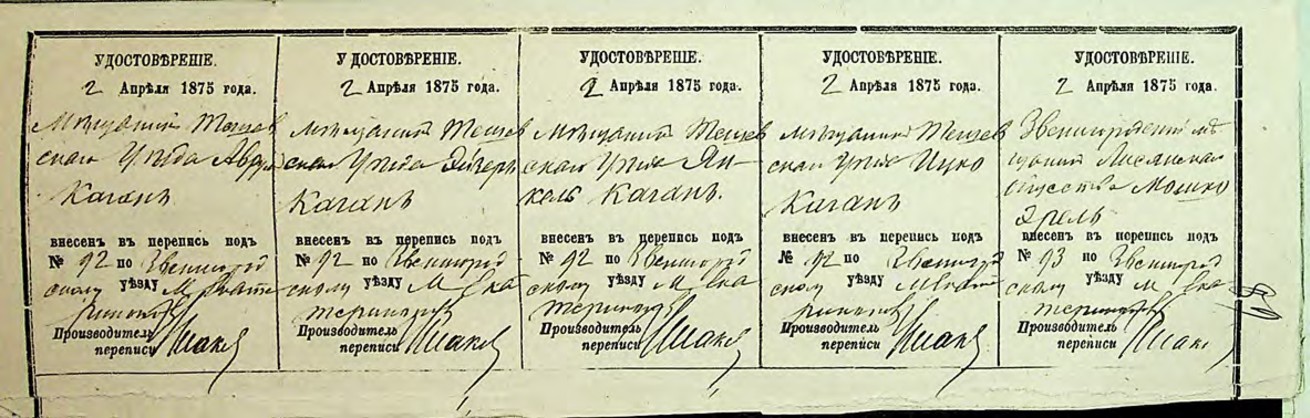 УДОСТОВѢРЕНІЕ.
2 Апрѣля 1875 года.
Мѣщанинъ
скаго Уѣзда
Каганъ
внесенъ въ перепись подъ
№ 92 по Звенигород
скому уѣзду М. Екате
ринополь
Производитель
переписи
УДОСТОВѢРЕНІЕ.
2 Апрѣля 1875 года.
Мѣщанинъ
скаго Уѣзда
Каганъ
внесенъ въ перепись подъ
№ 92 по Звенигород
скому уѣзду М. Ека
теринополь
Производитель
переписи
УДОСТОВѢРЕНІЕ.
2 Апрѣля 1875 года.
Мѣщанинъ
скаго Уѣзда Ян
кель Каганъ.
внесенъ въ перепись подъ
№ 92 по Звенигород
скому уѣзду М. Ека
теринополь
Производитель
переписи
УДОСТОВѢРЕНІЕ.
2 Апрѣля 1875 года.
Мѣщанинъ
скаго Уѣзда Ицко
Каганъ
внесенъ въ перепись подъ
№ 92 по Звенигород
скому уѣзду М. Екате
ринополь
Производитель
переписи
УДОСТОВѢРЕНІЕ.
2 Апрѣля 1875 года.
Звенигородскій мѣ
щанинъ Лисянскаго
общества Мошко
внесенъ въ перепись подъ
№ 93 по Звенигород
скому уѣзду М. Ека
теринополь
Производитель
переписи